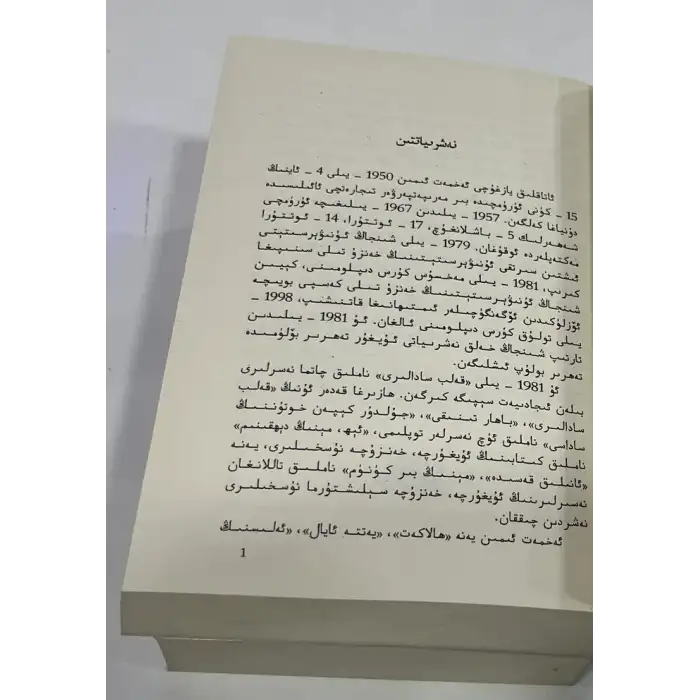 نەشرىياتتىن
ئاتاقلىق يازغۇچى ئەخمەت ئىمىن 1950 ـ يىلى 4 ـ ئاينىڭ
15 ـ كۈنى ئۈرۈمچىدە بىر مەرىپەتپەرۋەر تىجارەتچى ئائىلىسىدە
دۇنياغا كەلگەن. 1957 ـ يىلىدىن 1967 ـ يىلىغىچە ئۈرۈمچى
شەھەرلىك 5 ـ باشلانغۇچ، 17 ـ ئوتتۇرا، 14 ـ ئوتتۇرا
مەكتەپلەردە ئوقۇغان. 1979 ـ يىلى شىنجاڭ ئۇنىۋېرسىتېتى
ئىشتىن سىرتقى ئۇنىۋېرسىتېتىنىڭ خەنزۇ تىلى سىنىپىغا
كىرىپ، 1981 ـ يىلى مەخسۇس كۇرس دىپلومىنى، كېيىن
شىنجاڭ ئۇنىۋېرسىتېتىنىڭ خەنزۇ تىلى كەسپى بويىچە
ئۆزلۈكىدىن ئۆگەنگۈچىلەر ئىمتىھانىغا قاتنىشىپ، 1998 ـ
يىلى تولۇق كۇرس دىپلومىنى ئالغان. ئۇ 1981 ـ يىلىدىن
تارتىپ شىنجاڭ خەلق نەشرىياتى ئۇيغۇر تەھرىر بۆلۈمىدە
تەھرىر بولۇپ ئىشلىگەن.
ئۇ 1981 ـ يىلى «قەلب سادالىرى» ناملىق چاتما نەسىرلىرى
بىلەن ئىجادىيەت سېپىگە كىرگەن. ھازىرغا قەدەر ئۇنىڭ «قەلب
سادالىرى»، «باھار تىنىقى»، «جۇلدۇر كېپەن خوتۇننىڭ
ساداسى» ناملىق ئۈچ نەسىرلەر توپلىمى، «ئېھ، مېنىڭ دېھقىنىم»
ناملىق كىتابىنىڭ ئۇيغۇرچە، خەنزۇچە نۇسخىلىرى، يەنە
«ئانىلىق قەسىدە»، «مېنىڭ بىر كۈنۈم» ناملىق تاللانغان
نەسىرلىرىنىڭ ئۇيغۇرچە، خەنزۇچە سېلىشتۇرما نۇسخىلىرى
نەشردىن چىققان.
ئەخمەت ئىمىن يەنە «ھالاكەت»، «يەتتە ئايال»، «ئەلىسنىڭ
1